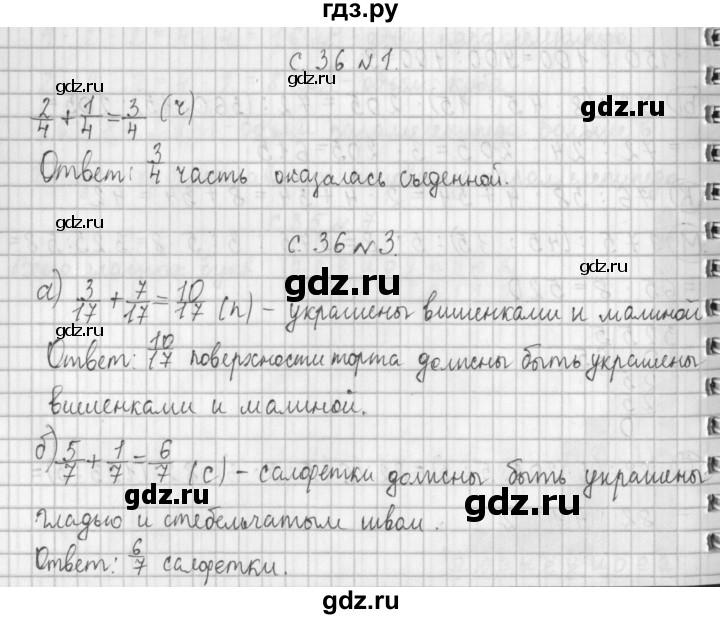 гдз.ру
с. 36 №1.
gdz.ru
gdz.ru
2/4 + 1/4 = 3/4 (ч)
gdz.ru
Ответ: 3/4 часть оказалась съеденной.
gdz.ru
с. 36 №3.
gdz.ru
gdz.ru
а) 3/17 + 7/17 = 10/17 (п) – украшены вишенками и малиной
Ответ: 10/17 поверхности торта должны быть украшены
вишенками и малиной.
б) 5/7 + 1/7 = 6/7 (с) – салфетки должны быть украшены
gdz.ru
gdz.ru
гладью и стебельчатым швом.
Ответ: 6/7 салфетки.
gdz.ru
gdz.ru